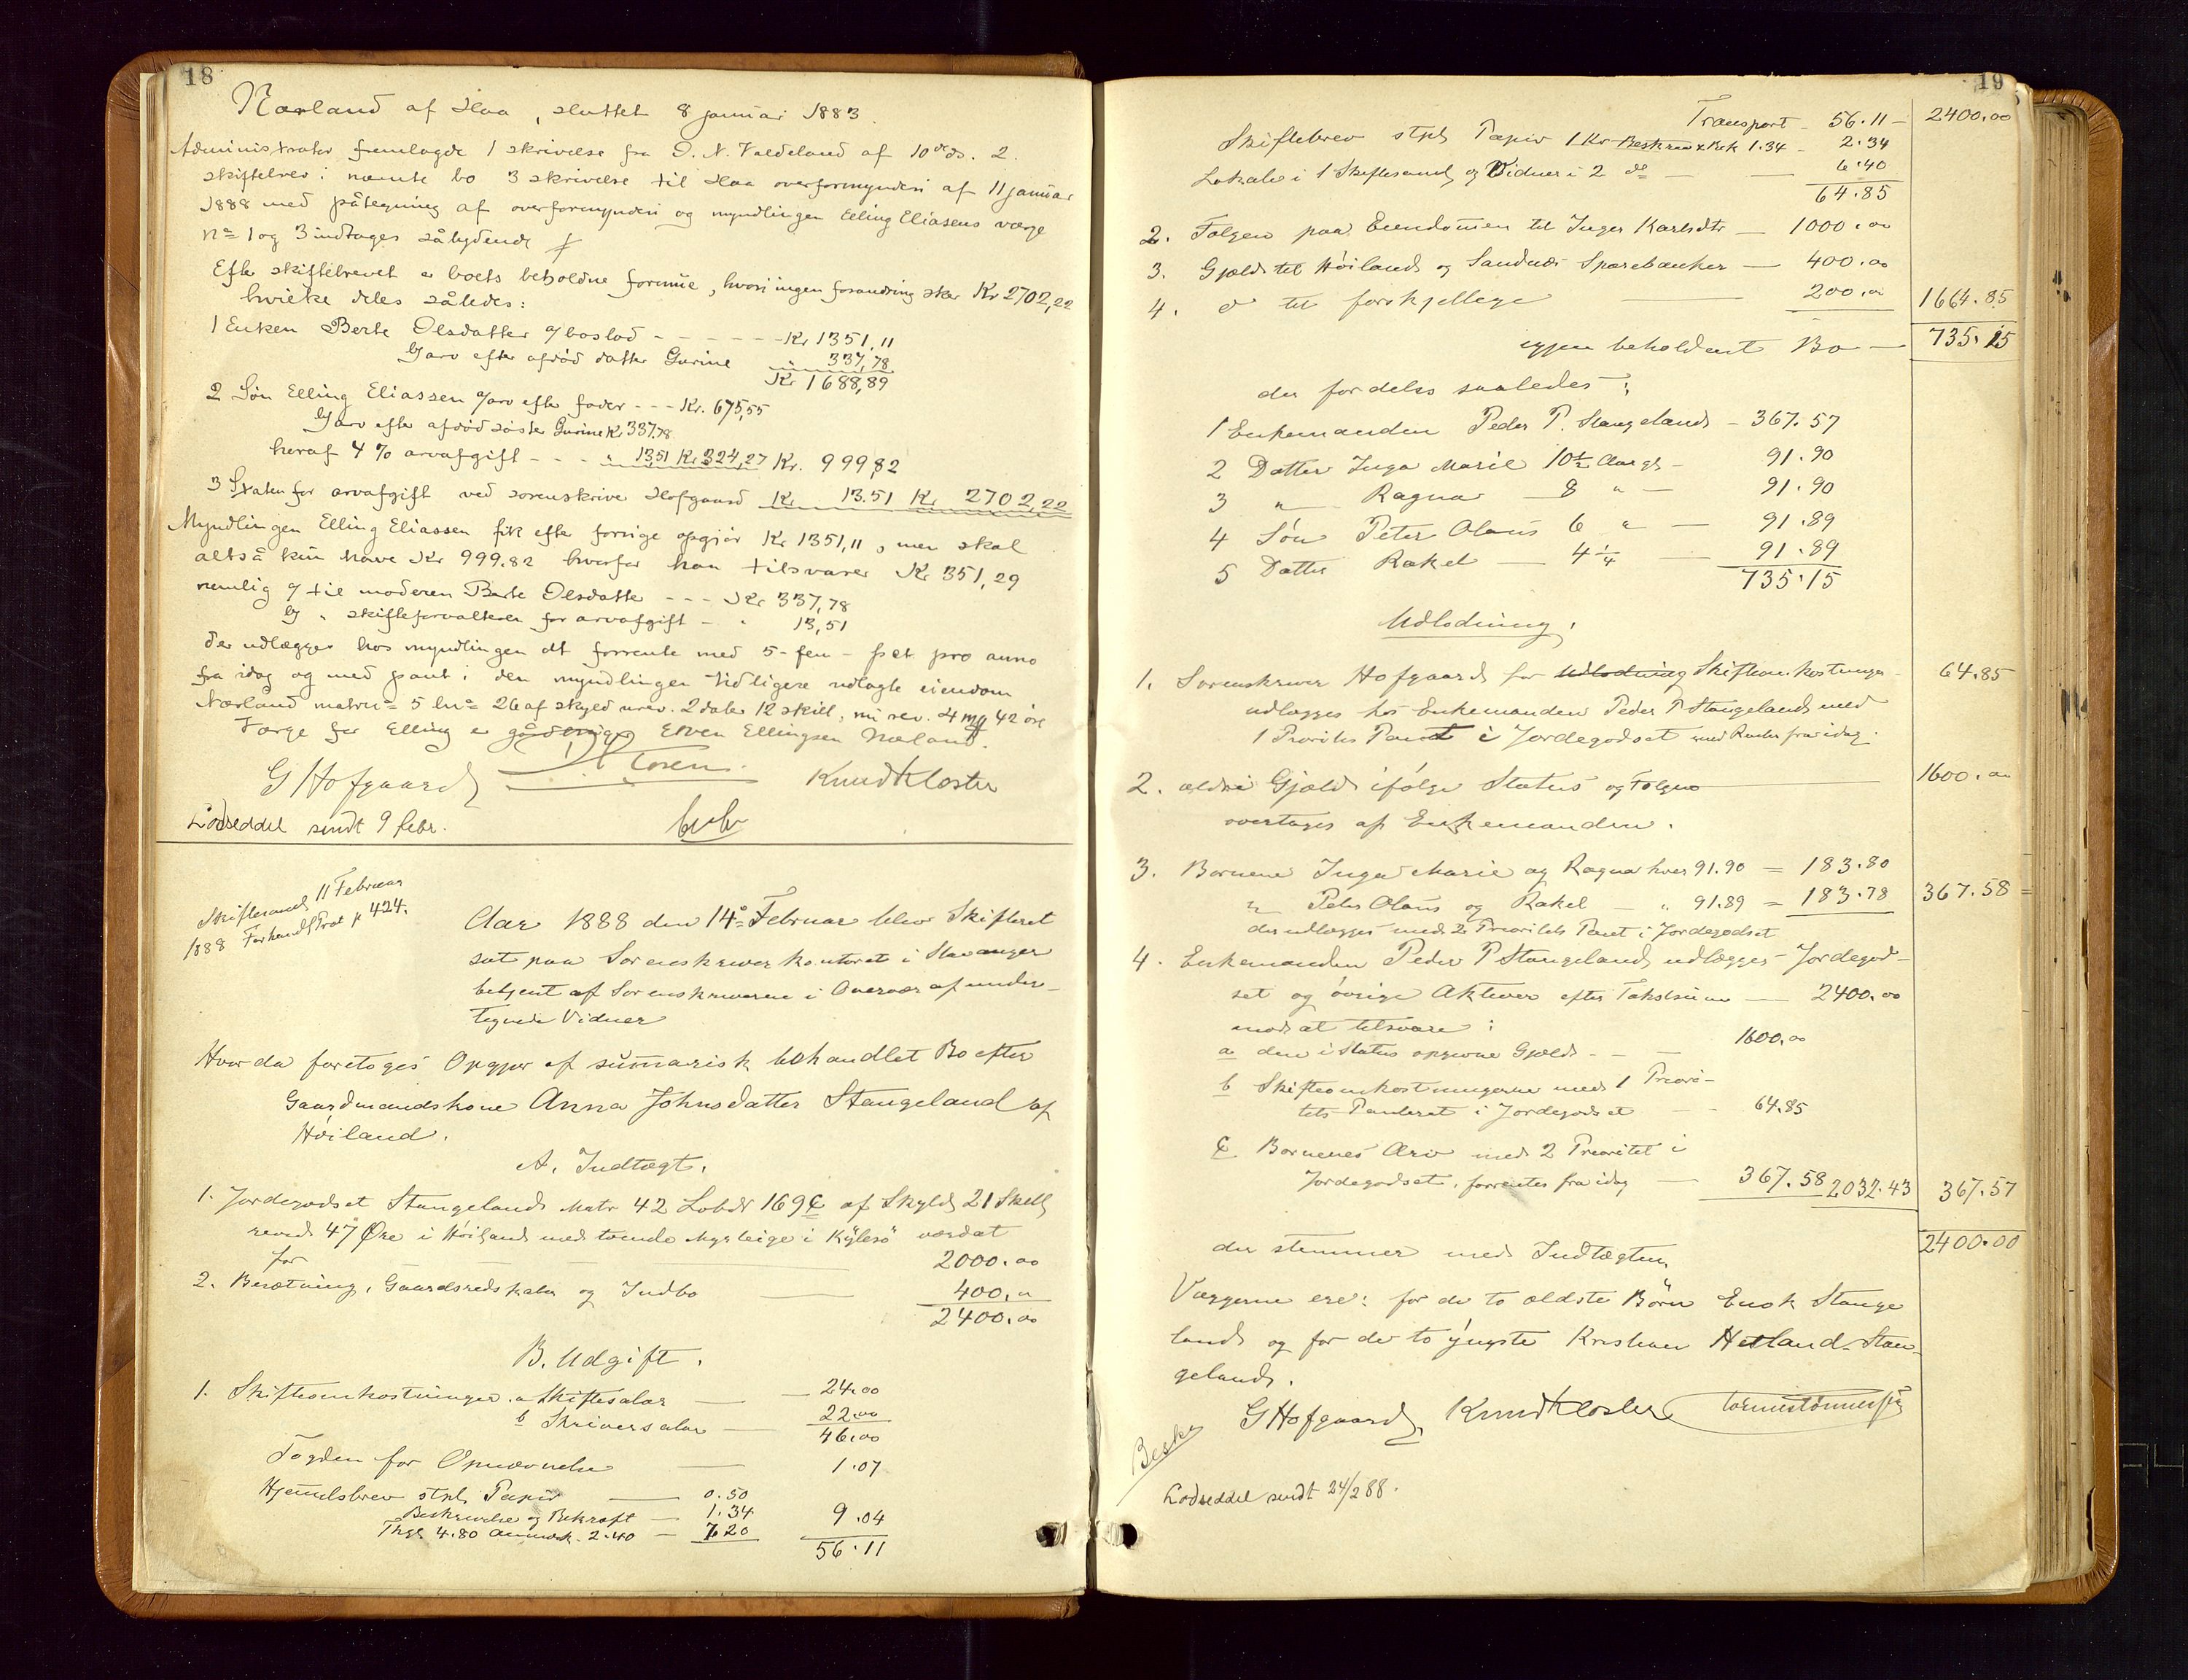 18
Nærland af Haa, sluttet 8 januar 1883.
Administrator fremlagde 1 skrivelse fra O. N. Valdeland af 10de ds. 2.
skiftebrev i nævnte bo 3 skrivelse til Haa overformynderi af 11 januar
1888 med påtegning af overformynderi og myndlingen Elling Eliasens værge
No 1 og 3 indtages sålydende
Efter skiftebrevet er boets beholdne formue, hvori ingen forandring sker Kr 2702,22
hvilke deles således:
1 Enken Berte Olsdatter a/ boslod - - - - - - Kr 1351,11
b/ arv efter afdød datter Gurine " 337,78
Kr 1688,89
2 Søn Elling Eliassen a/ arv efter fader - - - Kr. 675,55
b/ arv efter afdød søster Gurine Kr 337,78
heraf 4 % arvafgift - - - " 13,51 Kr 324,27 Kr. 999,82
3 Staten for arvafgift ved sorenskriver Hofgaard Kr 13.51 Kr 2702,22
Myndlingen Elling Eliassen fik efter forrige opgjør Kr 1351,11, men skal
altså kun have Kr 999.82 hvorfor han tilsvarer Kr 351,29
nemlig a/ til moderen Berte Olsdatter - - - Kr 337,78
b/ " skifteforvalteren for arvafgift - " 13,51
der udlægges hos myndlingen at forrente med 5 - fem - pct. pro anno
fra idag og med pant i den myndlingen tidligere udlagte eiendom
Nærland matrno 5 lno 26 af skyld urev. 2 daler 12 skill, nu rev. 4 mk 42 øre
Værge for Elling er gårdbruger Enven Ellingsen Nærland.
G Hofgaard Knud Kloster
Lodseddel sendt 9 febr.
Skiftesaml 11 Februar
1888 Forhandl Prot p 424.
Aar 1888 den 14de Februar blev Skifteret
sat paa Sorenskriverkontoret i Stavanger
betjent af Sorenskriveren i Overvær af under-
tegnede Vidner
Hvor da foretoges Opgjør af summarisk behandlet Bo efter
Gaardmandskone Anna Johnsdatter Stangeland af
Høiland.
A. Indtægt.
1. Jordegodset Stangeland Matr 42 Løbnr 169c af Skyld 21 Skill
revid 47 Øre i Høiland med tvende Myrteige i værdat
for 2000.00
2. Besætning, Gaardsredskaber og Indbo 400.00
2400.00
B. Udgift.
1. Skifteomkostninger a Skiftesalær 24.00
b Skriversalær 22.00
46.00
Fogden for Opnævnelse 1.07
Hjemmelsbrev stpl Papir 0.50
Beskrivelse og Bekræft 1.34
Thgl 4.80 Anmærk. 2.40 7.20 9.04
56.11
19
Transport 56.11 2400.00
Skiftebrev stpl Papir 1 Kr Beskriv & Bek 1.34 2.34
Lokale i 1 Skiftesaml og Vidner i 2 do 6.40
64.85
2. Følgen paa Eiendommen til Inger Karlsdtr 1000.00
3. Gjæld til Høiland og Sandnæs Sparebanker 400.00
4. do til forskjellige 200.00 1664.85
igjen beholdent Bo 735.15
der fordeles saaledes:
1 Enkemanden Peder P. Stangeland - 367.57
2 Datter Inga Marie 10½ Aar gl - 91.90
3 " Ragna 8 " - 91.90
4 Søn Peter Olaus 6 " - 91.89
5 Datter Rakel 4¼ 91.89
735.15
Udlodning.
1. Sorenskriver Hofgaard for Udlodning Skifteomkostninger 64.85
udlægges hos Enkemanden Peder P Stangeland med
1 Prioritets Pant i Jordegodset med Renter fra idag.
2. ældre Gjæld ifølge Status og Følgen 1600.00
overtages af Enkemanden.
3. Børnene Inga Marie og Ragna hver 91.90 = 183.80
" Peter Olaus og Rakel - " 91.89 = 183.78 367.58
der udlægges med 2 Prioritets Pant i Jordegodset
4. Enkemanden Peder P Stangeland udlægges Jordegod-
set og øvrige Aktiver efter Takstsum 2400.00
mod at tilsvare:
a den i Status opgivne Gjæld - 1600.00
b Skifteomkostningerne med 1 Priori-
tets Panteret i Jordegodset 64.85
c Børnenes Arv med 2 Prioritet i
Jordegodset, forrentes fra idag 367.58 2032.43 367.57
der stemmer med Indtægten. 2400.00
Værgerne ere: for de to ældste Børn Enok Stange
land og for de to yngste Kristian Hetland Stan-
geland.
G Hofgaard Knud Kloster
Beskr
Lodseddel sendt 24/2 88.